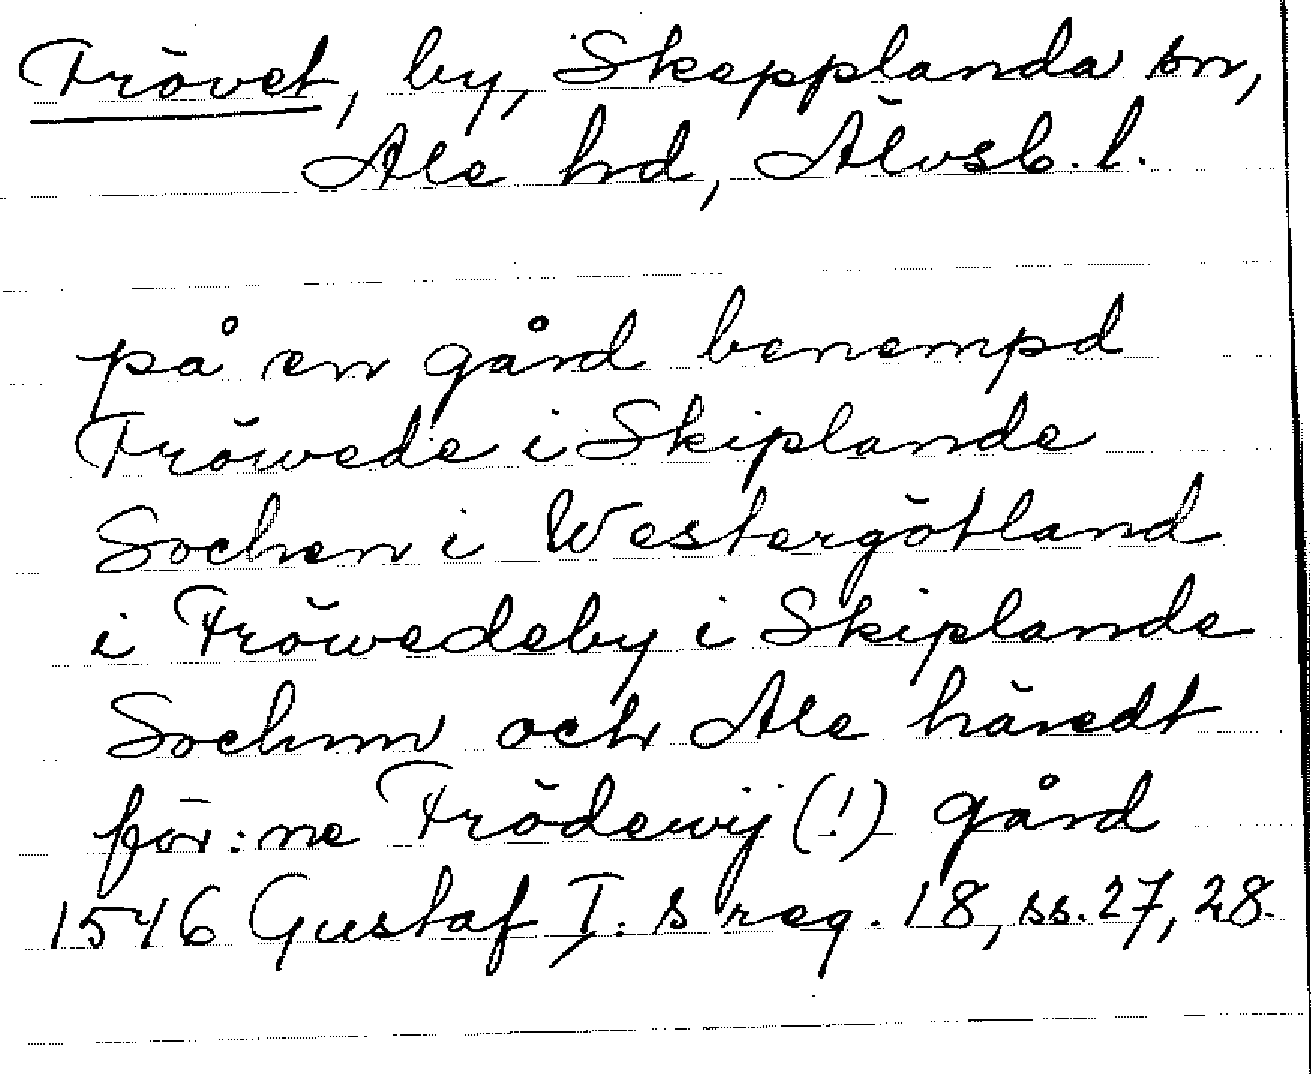 Frövet, by, Skepplanda sn,
Ale hd, Älvsb. l.
på en gård benempd
Fröwede i Skiplande
Sochen i Westergötland
i Fröwedeby i Skiplande
Sochnn och Ale häredt
för:ne Frödewij (!) gård
1546 Gustaf I: s reg. 18, ss. 27, 28.